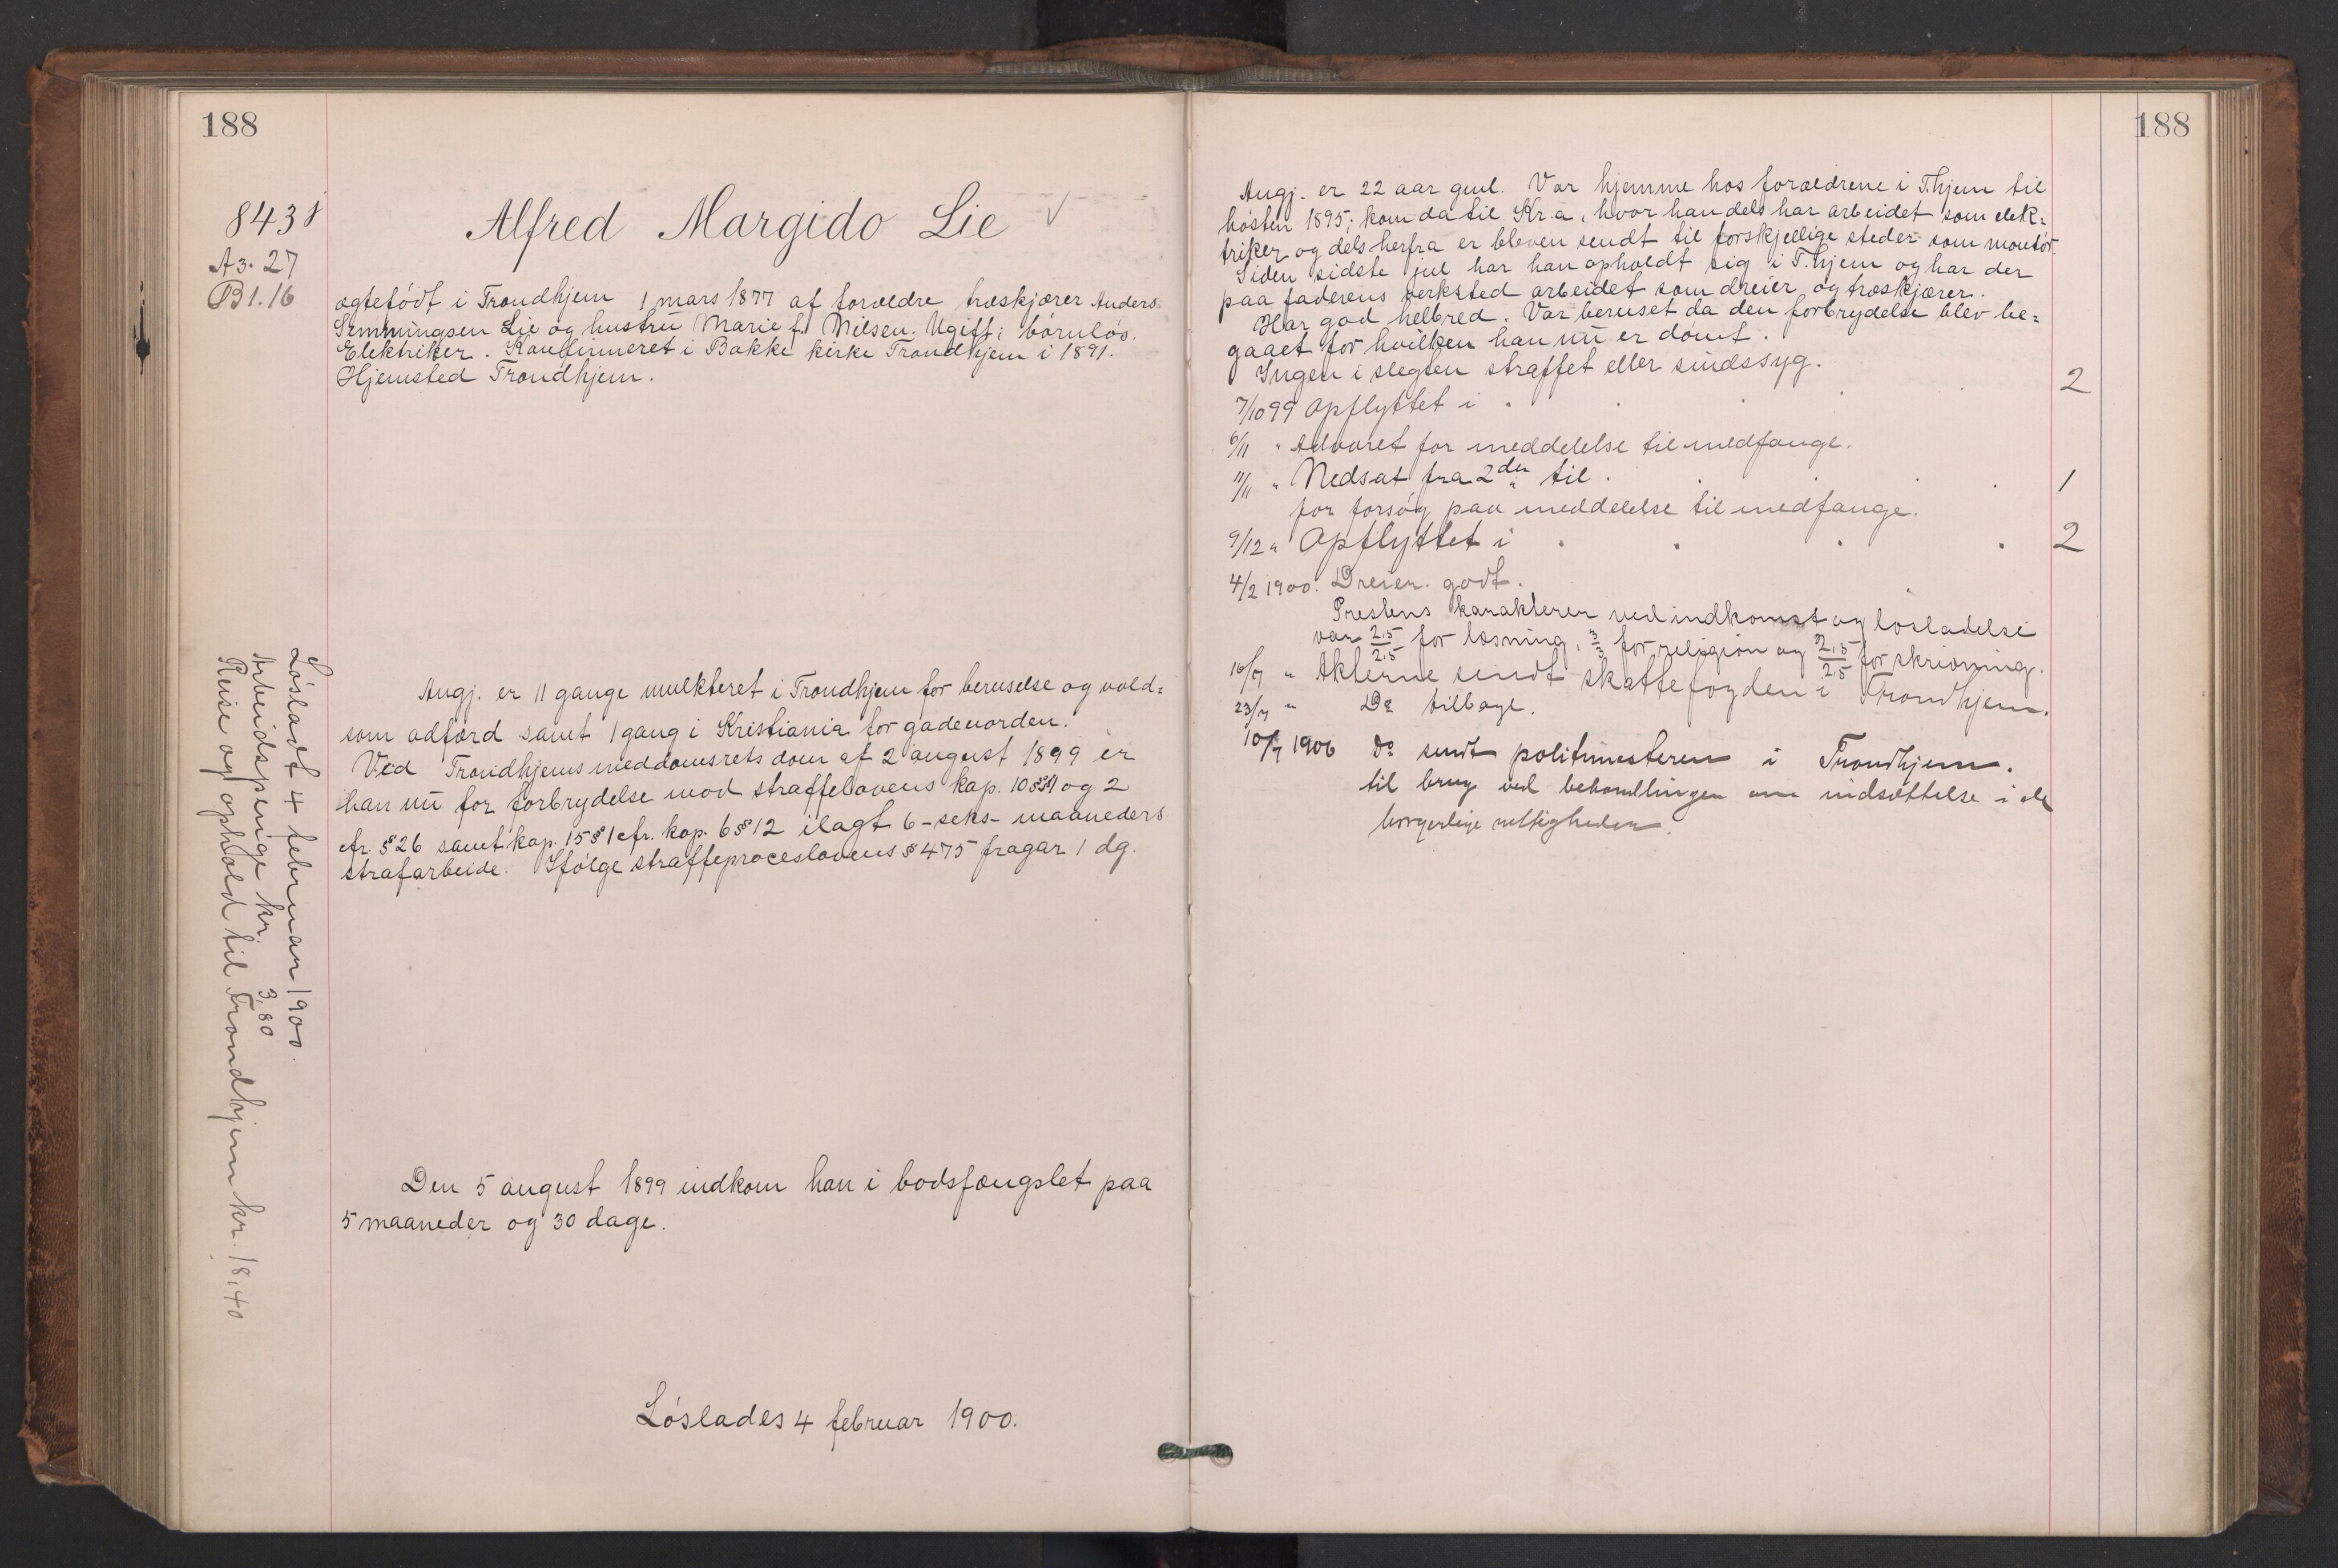 188
8438
A3. 27
B1. 16
Alfred Margido Lie √
ægtefødt i Trondhjem 1 mars 1877 af forældre træskjærer Anders
Semmingsen Lie og hustru Marie f. Nilsen. Ugift; børnløs.
Elektriker. Konfirmeret i Bakke kirke Trondhjem i 1891.
Hjemsted Trondhjem.
Angj. er 11 gange mulkteret i Trondhjem for beruselse og vold=
som adfærd samt 1 gang i Kristiania for gadeuorden.
Ved Trondhjems meddomsrets dom af 2 august 1899 er
han nu for forbrydelse mod straffelovens kap. 10 §§ 1 og 2
cfr. § 26 samt kap. 15 § 1 cfr. kap. 6 § 12 ilagt 6 - seks - maaneders
strafarbeide. Ifølge straffeproceslovens § 475 fragaar 1 dg.
Den 5 august 1899 indkom han i bodsfængslet paa
5 maaneder og 30 dage.
Løslades 4 februar 1900.
Løsladt 4 februar 1900.
Arbeidspenge kr. 3,80
Reise og ophold til Trondhjem kr. 18,40
188
Angj. er 22 aar gml. Var hjemme hos forældrene i T.hjem til
høsten 1895; kom da til Kr.a, hvor han dels har arbeidet som elek=
triker og dels herfra er bleven sendt til forskjellige steder som montør.
Siden sidste jul har han opholdt sig i T.hjem og har der
paa faderens verksted arbeidet som dreier og træskjærer.
Har god helbred. Var beruset da den forbrydelse blev be=
gaaet for hvilken han nu er dømt.
Ingen i slegten straffet eller sindssyg.
7/10 99 Opflyttet i . . . . 2
6/11 " Advaret for meddelelse til medfange.
11/11 " Nedsat fra 2den til . . . . 1
for forsøg paa meddelelse til medfange.
9/12 " Opflyttet i . . . . 2
4/2 1900. Dreier. godt.
Prestens karakterer ved indkomst og løsladelse
var 2,5/2,5 for læsning, 3/3 for religion og 2,5/2,5 for skrivning.
16/7 " Akterne sendt skattefogden i Trondhjem.
23/7 " Do tilbage.
10/7 1906 Do sendt politimesteren i Trondhjem.
til brug ved behandlingen om indsættelse i de
borgerlige rettigheder.